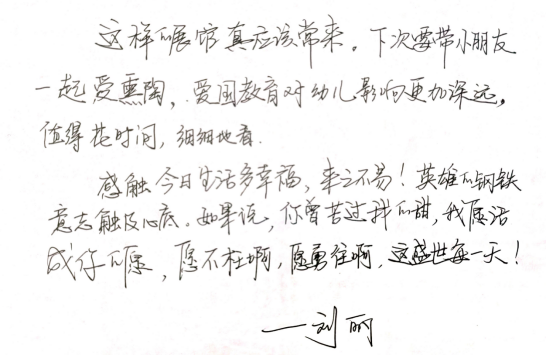 这样的展馆真应该常来。下次要带小朋友
一起受熏陶，爱国教育对幼儿影响更加深远，
值得花时间，细细地看。
感触今日生活多幸福，来之不易！英雄的钢铁
意志触及心底。如果说，你曾苦过我的甜，我愿活
成你的愿，愿不枉啊，愿勇往啊，这盛世每一天！
——刘丽